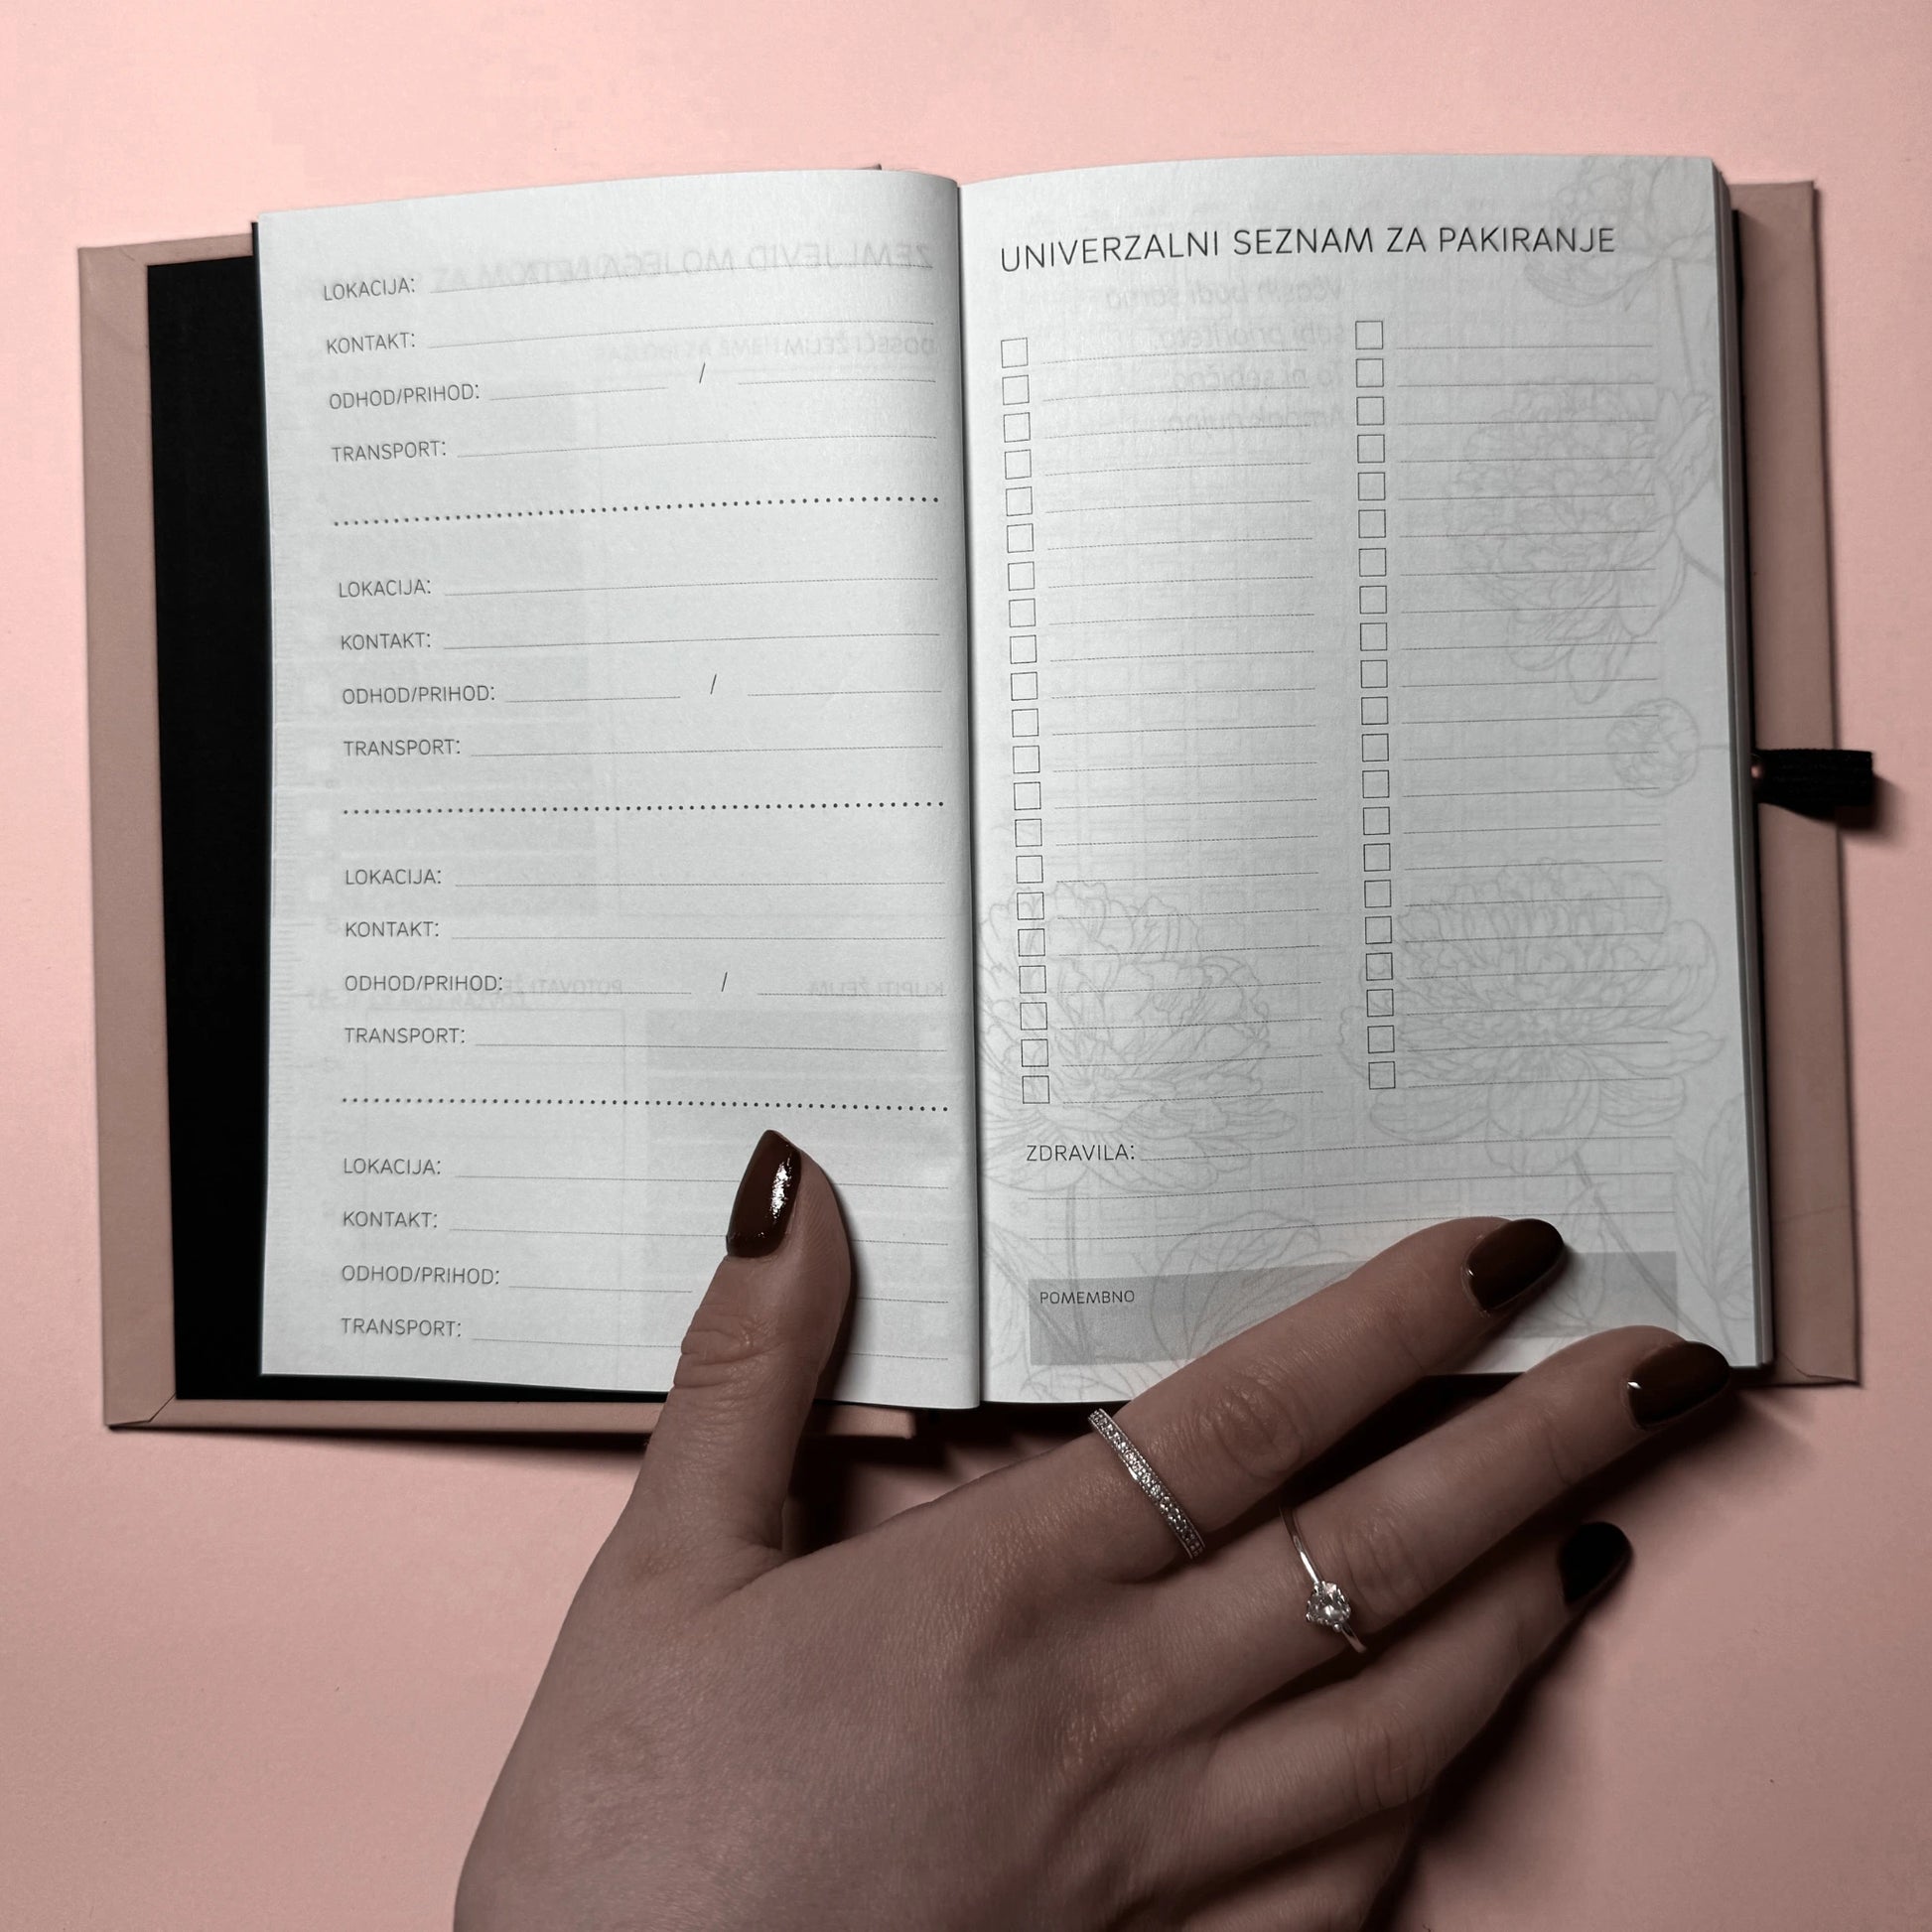 LOKACIJA:
KONTAKT:
ODHOD/PRIHOD: /
TRANSPORT:
LOKACIJA:
KONTAKT:
ODHOD/PRIHOD: /
TRANSPORT:
LOKACIJA:
KONTAKT:
ODHOD/PRIHOD: /
TRANSPORT:
LOKACIJA:
KONTAKT:
ODHOD/PRIHOD:
TRANSPORT:
UNIVERZALNI SEZNAM ZA PAKIRANJE
ZDRAVILA:
POMEMBNO